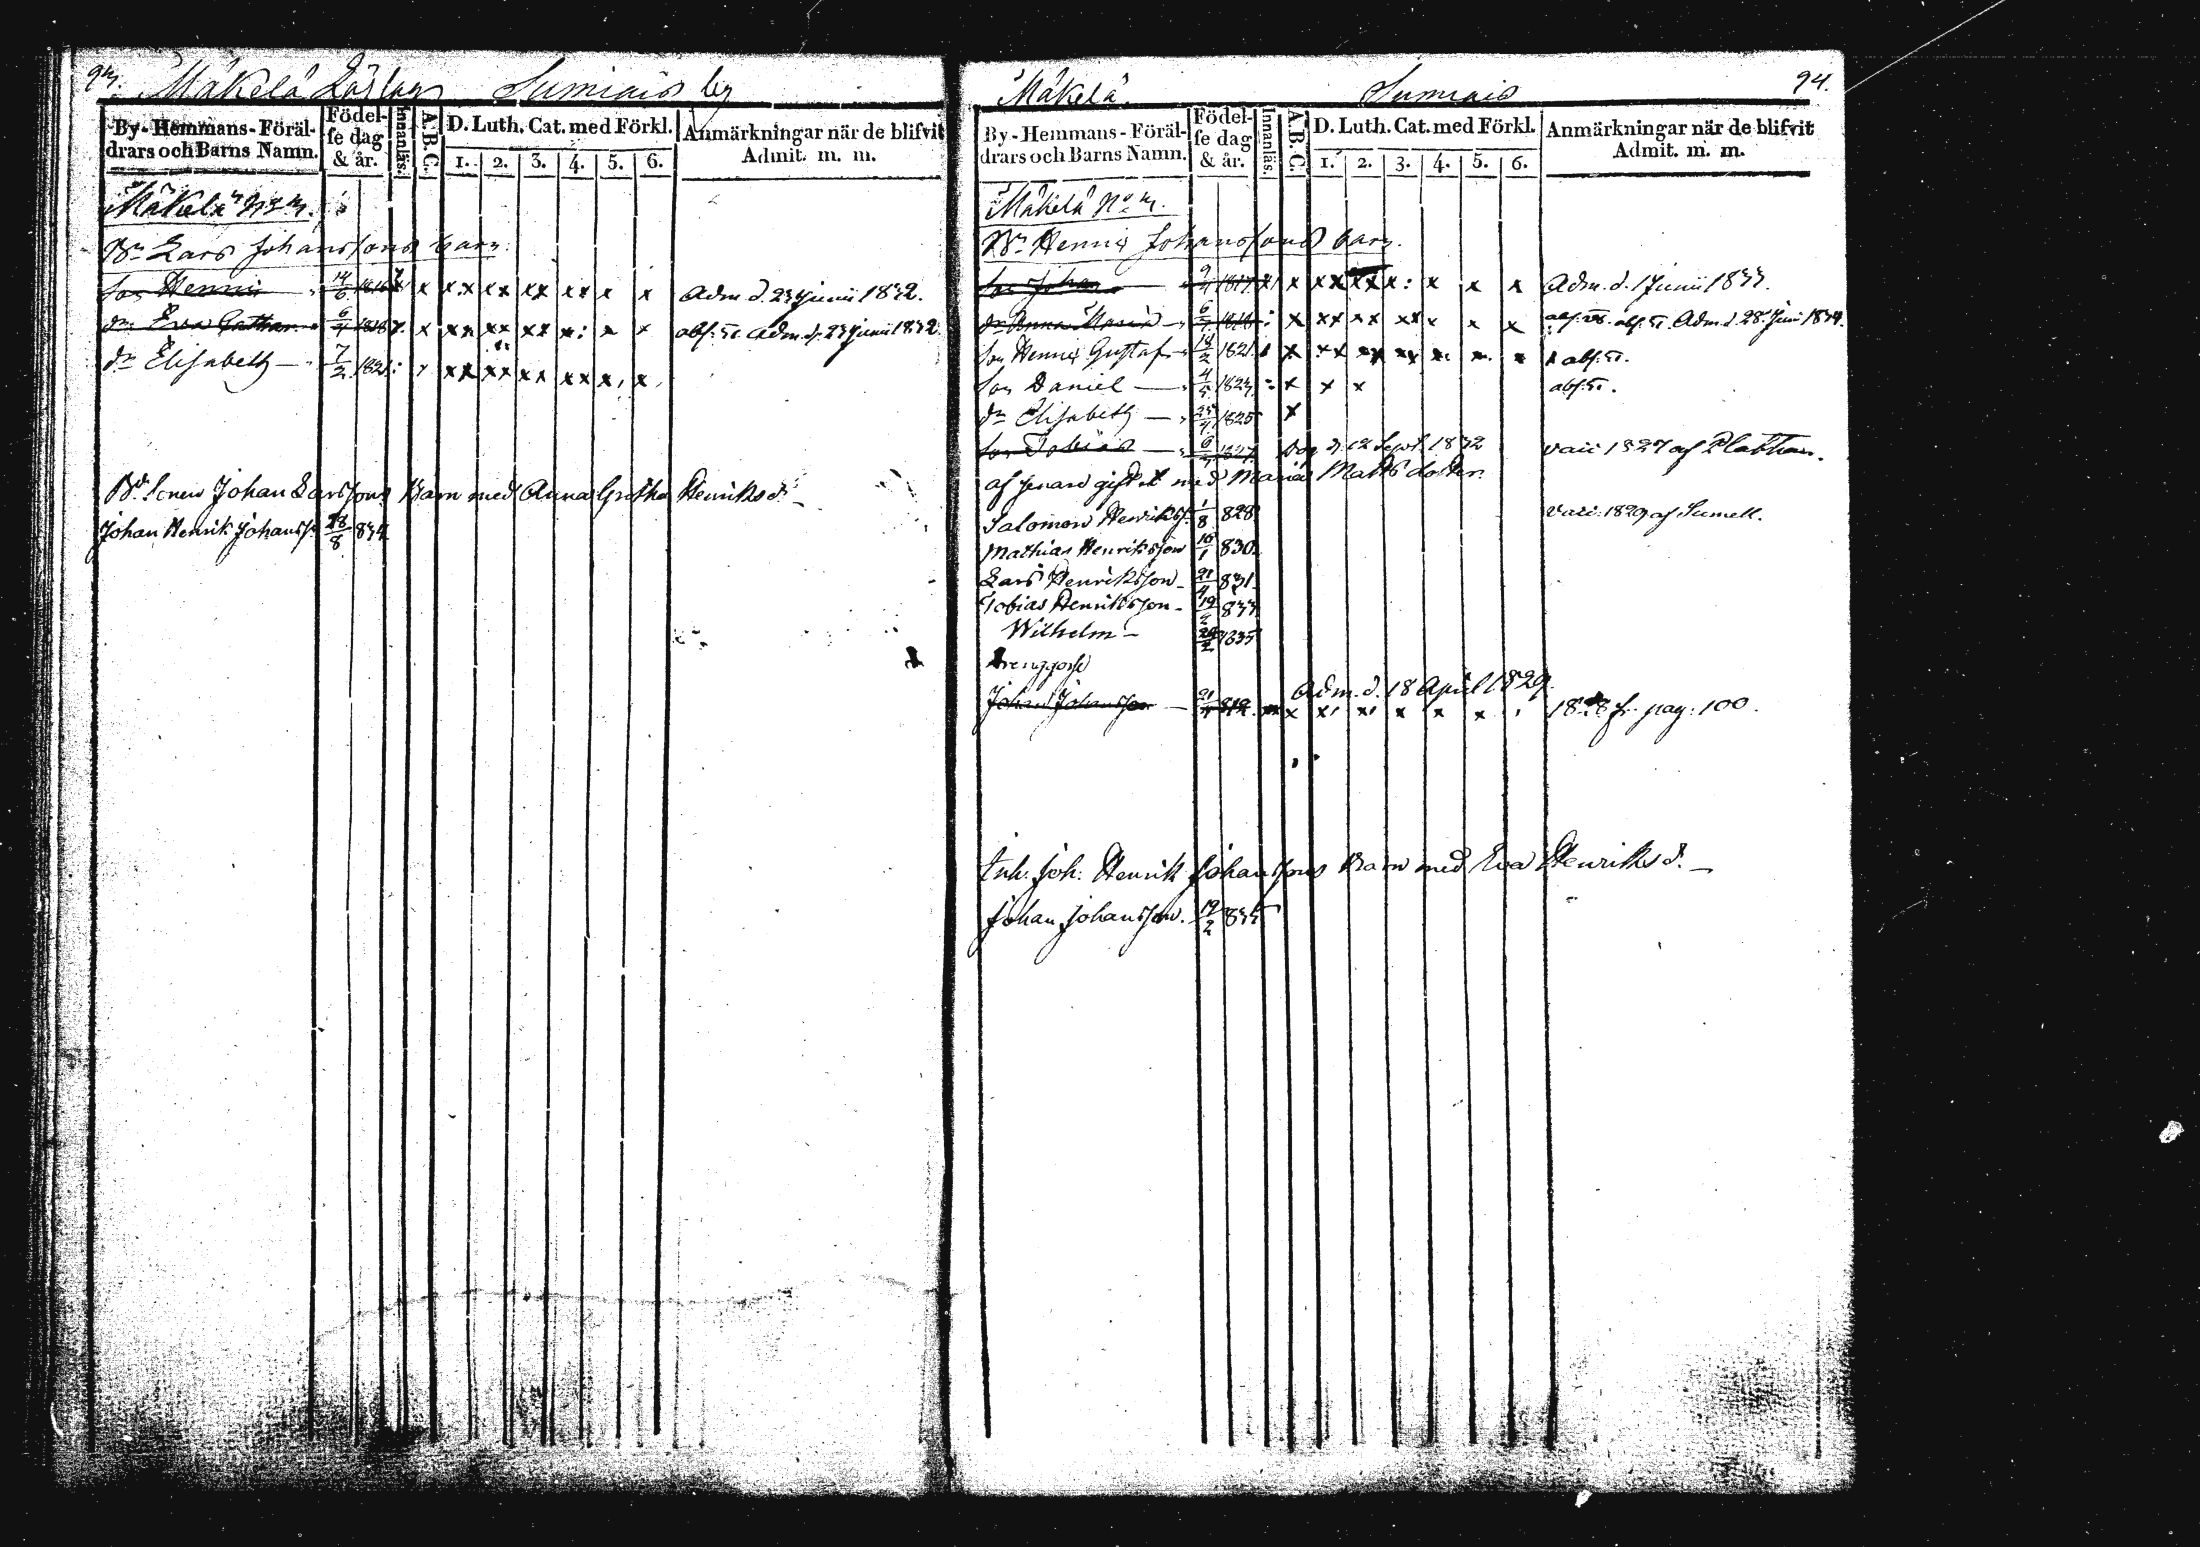 93. Mäkelä Löslag Sumiais by
By-Hemmans-Föräl-drars och Barns Namn. Födel-se dag & år. Innanläs. A.B.C. D. Luth. Cat. med Förkl. 1. 2. 3. 4. 5. 6. Anmärkningar när de blifvit Admit. m. m.
Mäkelä N:o 3.
Bn Lars Johanssons barn.
son Henric 14/6 1816 x x x x x x x x x x x x Adm. d. 23 Junii 1832.
dr. Eva Cathar. 6/4 1818 x x x x x x x x x x x abs. Adm. d. 23 Junii 1832
dr Elisabeth 7/2 1821 x x x x x x x x x x x
Bd. Sonen Johan Larssons Barn med Anna Gretha Henriksdr
Johan Henrik Johanss. 28/8 834
Mäkelä. Sumiais 94.
By-Hemmans-Föräl-drars och Barns Namn. Födel-se dag & år. Innanläs. A.B.C. D. Luth. Cat. med Förkl. 1. 2. 3. 4. 5. 6. Anmärkningar när de blifvit Admit. m. m.
Mäkelä No 3.
Bn Henric Johanssons barn.
son Johan 9/4 1817 x x x x x x x: x x x Adm. d. 1 Junii 1833.
dr Anna Maria 6/4 1818 : x x x x x x x x x x abs. abs. Adm. d. 28 Juni 1834.
son Henric Gustaf 18/2 1821 x x x x x x x x. x. x abs.
son Daniel 4/5 1823 : x x x abs.
dr Elisabeth 25/4 1825 x
son Tobias 6/3 1827 Dog d. 12 Sept. 1832 vacc 1827 af Plathan.
af senare giftet med Maria Matts dotter.
Salomon Henrikss. 1/8 828 vacc. 1829 af Sumell.
Mathias Henriksson 16/1 830
Lars Henriksson 21/4 831
Tobias Henriksson 19/2 833
Wilhelm 24/2 1835
Drenggosse
Adm. d. 18 April 1829.
Johan Johansson 21/4 812 x x x x x x 1828 fr. pag: 100.
Inh. Joh: Henrik Johanssons Barn med Eva Henriksd.
Johan Johansson. 19/2 835